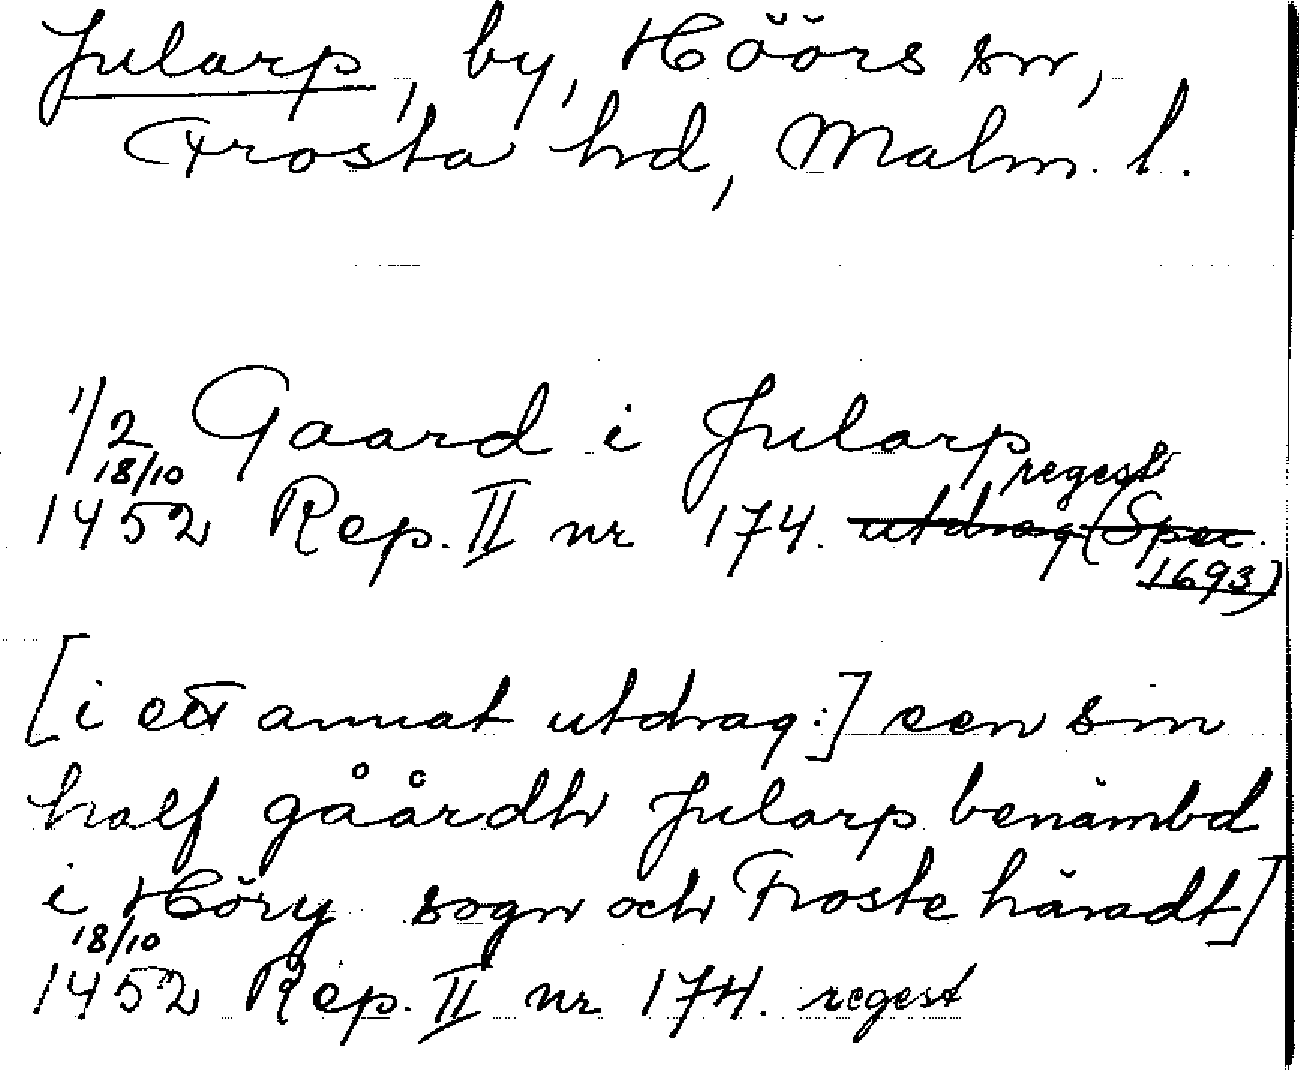 Jularp, by, Höörs sn,
Frosta hd, Malm. l.
1/2 Gaard i Jularp
18/10 regest
1452 Rep. II nr 174. utdrag (Spec.
1693)
[i ett annat utdrag:] een sin
half gåårdh Jularp benämbd
i Höry sogn och Froste häradt]
18/10
1452 Rep. II nr 174. regest